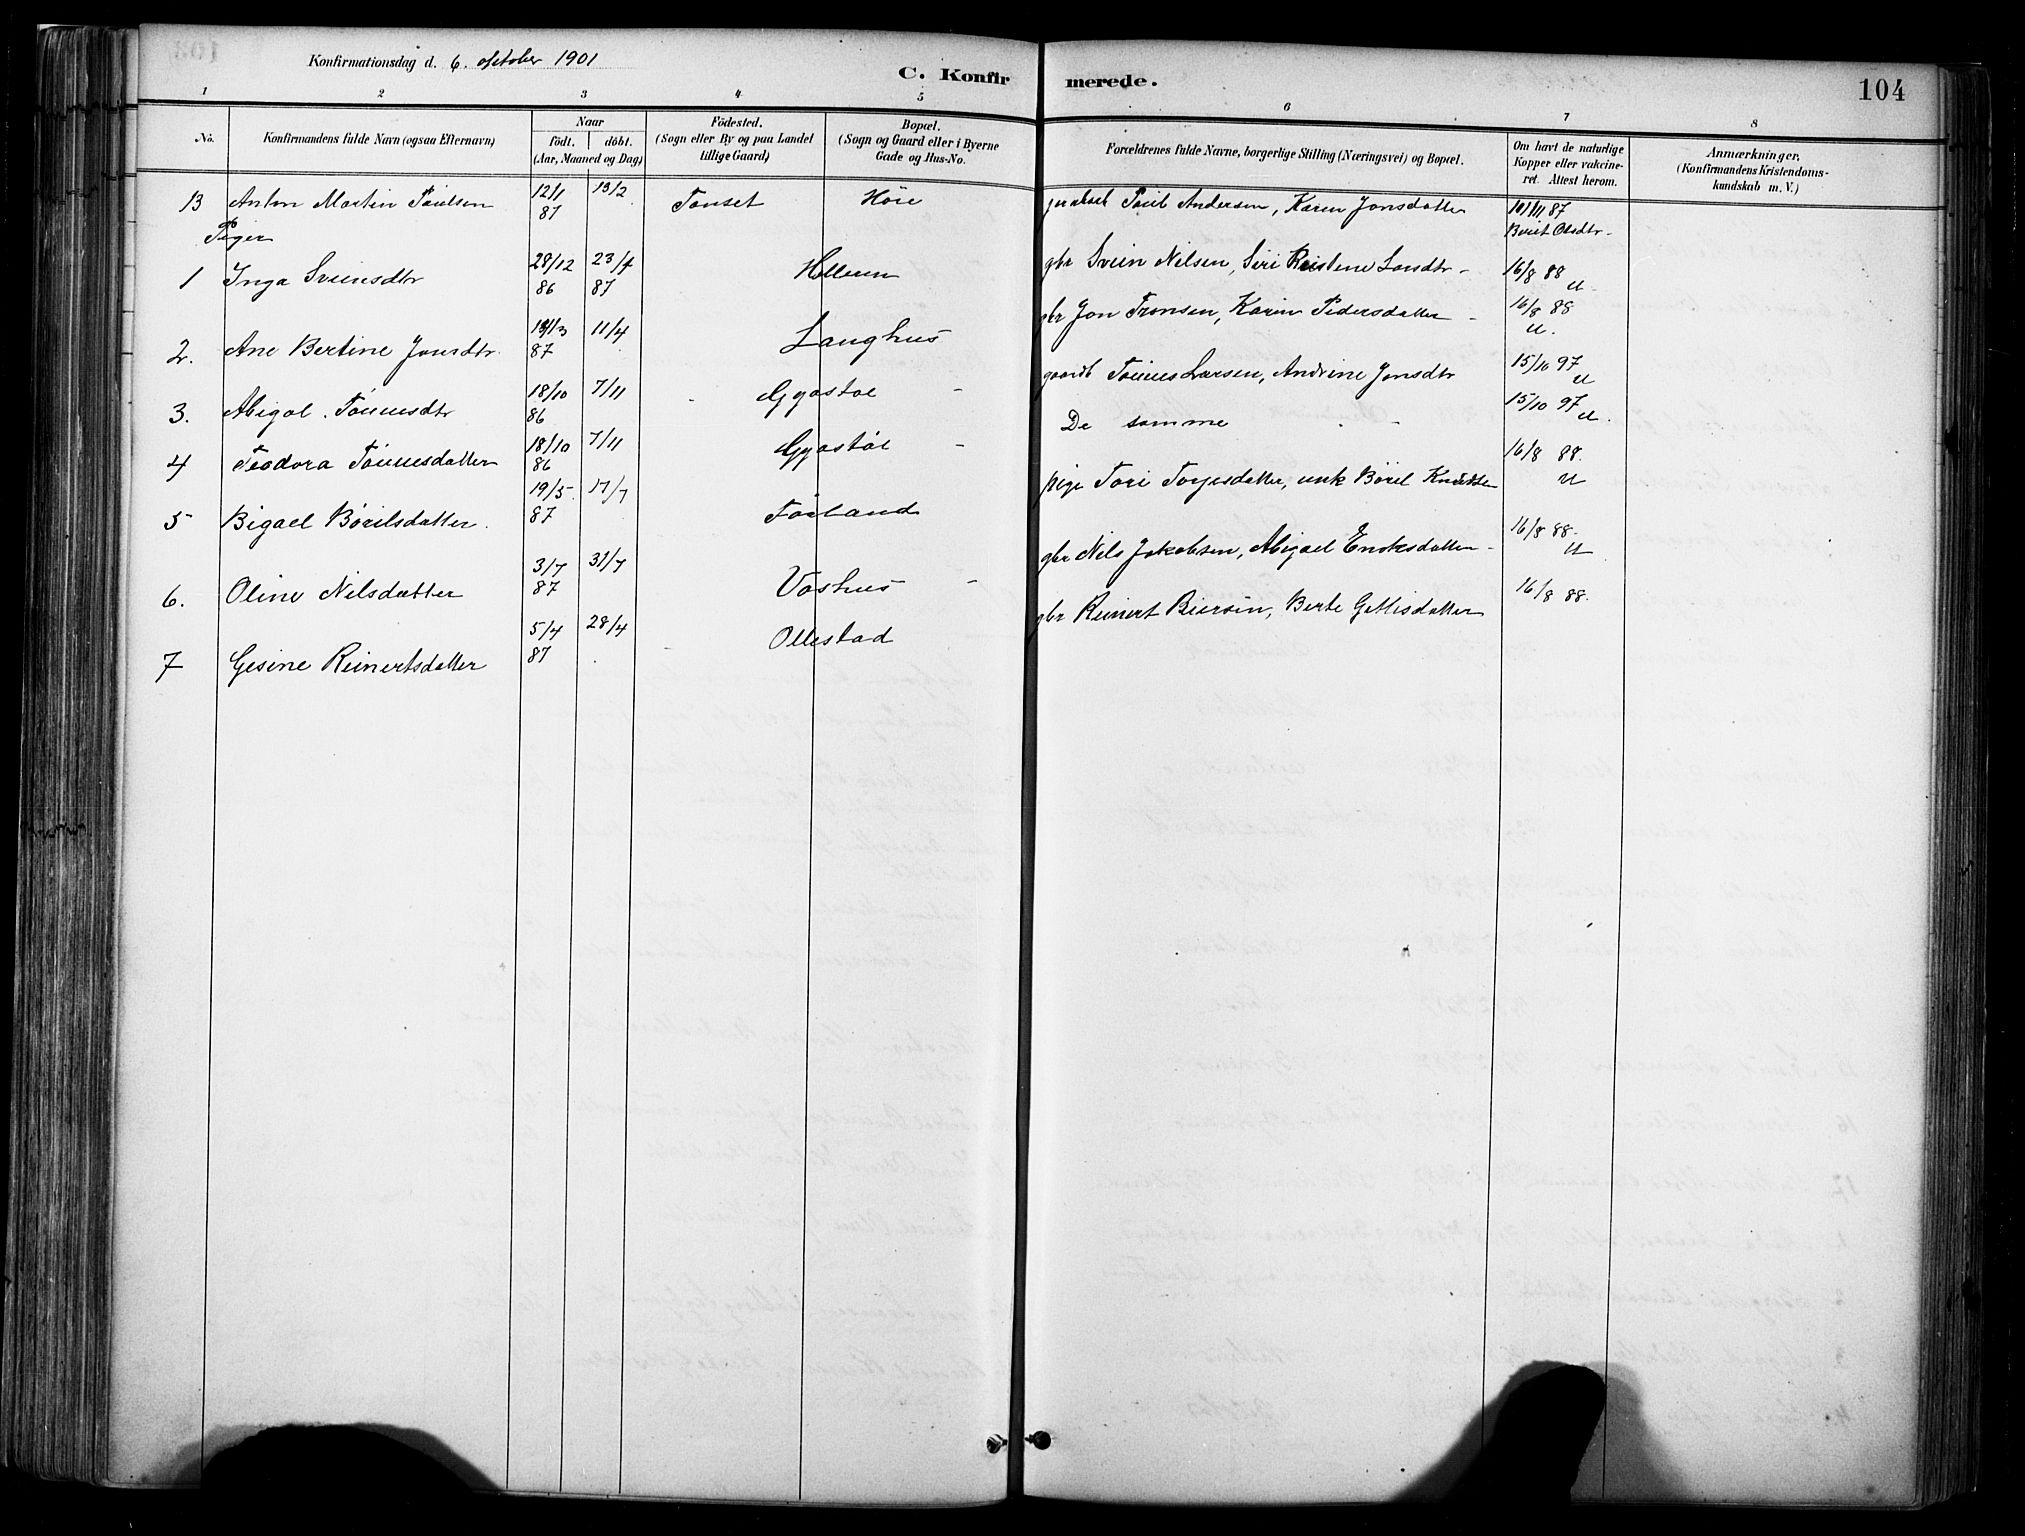 Konfirmationsdag d. 6. oktober 1901
C. Konfirmerede.
104
1 2 3 4 5 6 7 8
No.
Konfirmandens fulde Navn (ogsaa Efternavn)
Naar
født. døbt.
(Aar, Maaned og Dag)
Fødested.
(Sogn eller By og paa Landet tillige Gaard)
Bopæl.
(Sogn og Gaard eller i Byerne Gade og Hus-No.
Forældrenes fulde Navne, borgerlige Stilling (Næringsvei) og Bopæl.
Om havt de naturlige Kopper eller vakcineret. Attest herom.
Anmærkninger.
(Konfirmandens Kristendomskundskab m. V.)
13 Anton Martin 12/1 87 13/2 Høie Andersen, Karen Jonsdatter 87
Berit Olsdtr.
Piger
1 Inga Sveinsdtr 28/12 86 23/4 87 Helleren gbr Svein Nilsen, Siri 16/8 88
2. Ane Bertine Jonsdtr. 87 11/4 Langhus gbr Jon Tronsen, Karen Pedersdatter 16/8 88
3. Abigal 18/10 86 7/11 Larsen, Andrine Jonsdtr 15/10 97
4 Teodora 18/10 86 7/11 De samme 15/10 97
5 Bigael Børilsdatter. 19/5 87 17/7 pige 16/8 88.
6. Oline Nilsdatter 3/7 87 31/7 gbr Nils Jakobsen, Abigael 16/8 88.
7 Gesine Reinertsdatter 5/4 87 28/4 Ollestad gbr Reinert Berte 16/8 88.